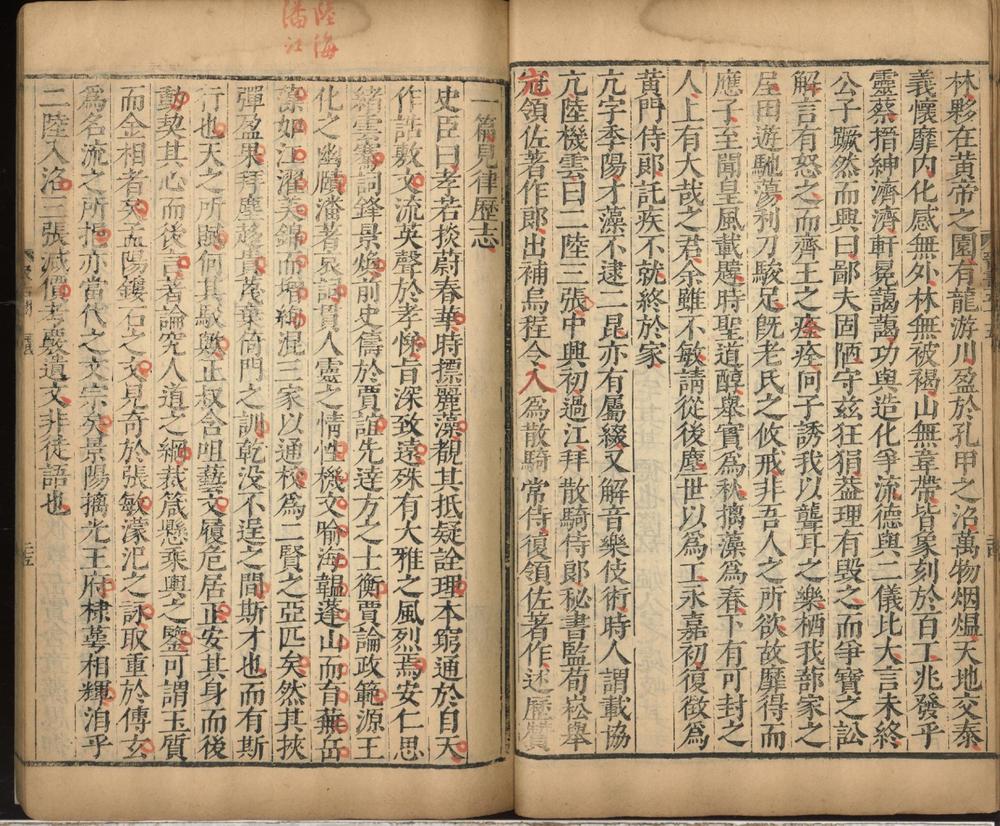 林夥在黃帝之園有龍游川盈於孔甲之沼萬物烟熅天地交泰
義懷靡內化感無外林無被褐山無韋帶皆象刻於百工兆發乎
靈蔡搢紳濟濟軒冕藹藹功與造化爭流德與二儀比大言未終
公子蹶然而興曰鄙夫固陋守茲狂狷葢理有毀之而爭寶之訟
解言有怒之而齊王之痊痊向子誘我以聾耳之樂栖我蔀家之
屋田遊馳蕩利刀駿足旣老氏之攸戒非吾人之所欲故靡得而
應子至聞皇風載韙時聖道醇舉實爲秋摛藻爲春下有可封之
人上有大哉之君余雖不敏請從後塵世以爲工永嘉初復徵爲
黃門侍郎託疾不就終於家
亢字季陽才藻不逮二昆亦有屬綴又解音樂伎術時人謂載協
亢陸機雲曰二陸三張中興初過江拜散騎侍郎秘書監荀崧舉
亢領佐著作郎出補烏程令入爲散騎常侍復領佐著作述歷贊
一篇見律歷志
陸海
潘江
史臣曰孝若掞蔚春華時摽麗藻覩其抵疑詮理本窮通於自天
作誥敷文流英聲於孝悌旨深致遠殊有大雅之風烈焉安仁思
緒雲騫詞鋒景煥前史儔於賈誼先達方之士衡賈論政範源王
化之幽賾潘著哀詞貫人靈之情性機文喻海韞蓬山而育蕪岳
藻如江濯美錦而增絢混三家以通校爲二賢之亞匹矣然其挾
彈盈果拜塵趨貴蔑棄倚門之訓乾没不逞之間斯才也而有斯
行也天之所賦何其駁歟正叔含咀藝文履危居正安其身而後
動契其心而後言著論究人道之綱裁箴懸乘輿之鑒可謂玉質
而金相者矣孟陽鏤石之文見奇於張敏濛汜之詠取重於傅玄
爲名流之所挹亦當代之文宗矣景陽摛光王府棣萼相輝洎乎
二陸入洛三張减價考覈遺文非徒語也